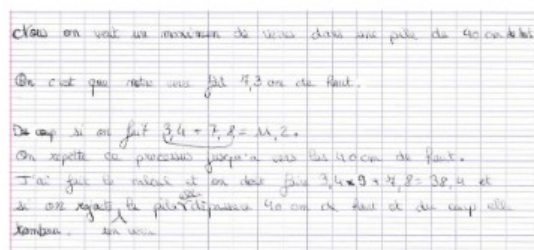 Nous on veut un maximum de verres dans une pile de 40 cm de haut
On c'est que notre verre fait 7,3 cm de haut.
Du coup si on fait 3,4 + 7,8 = 11,2.
On repette ce processus jusqu'a vers les 40 cm de haut.
J'ai fait le calcul et on doit faire 3,4 x 9 + 7,8 = 38,4 et
si on rajoute la pile elle dépassera 40 cm de haut et du coup elle
tombera. un verre